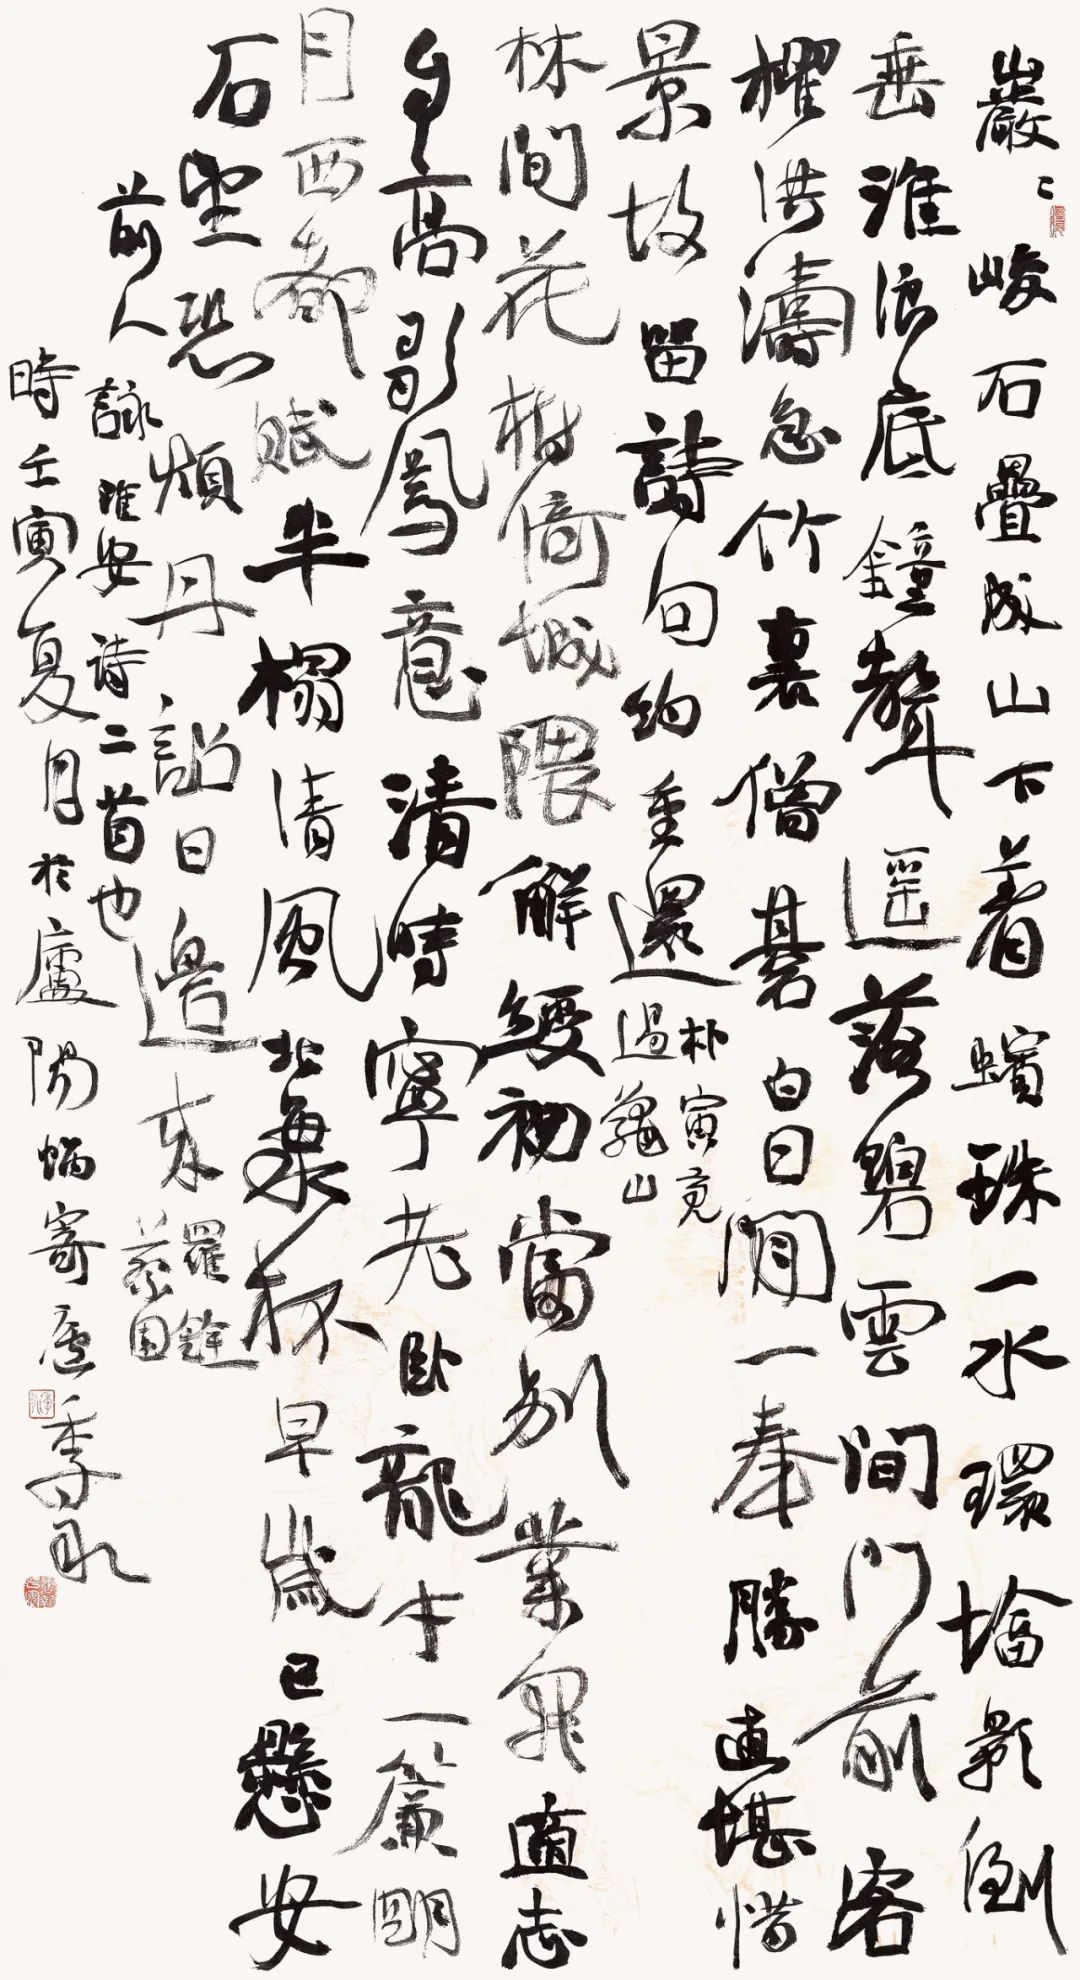 巖二峻石疊成山下着蠙珠一水環塔影倒
垂淮浪底鐘聲遥落碧雲間門前客
櫂洪濤急竹裏僧碁白日閒一奉勝區堪惜
景故留詩句約重還 朴寅亮 過龜山
林間花樹倚城隈解綬初當別業適志
自高歌鳳意清時寧老臥龍才一簾明
月西都賦半榻清風北海杯早歲已懸安
石望恐煩丹詔日邊來 羅銓 蔡園
前人詠淮安詩二首也
時壬寅夏月於廬陽蝸寄廬季永